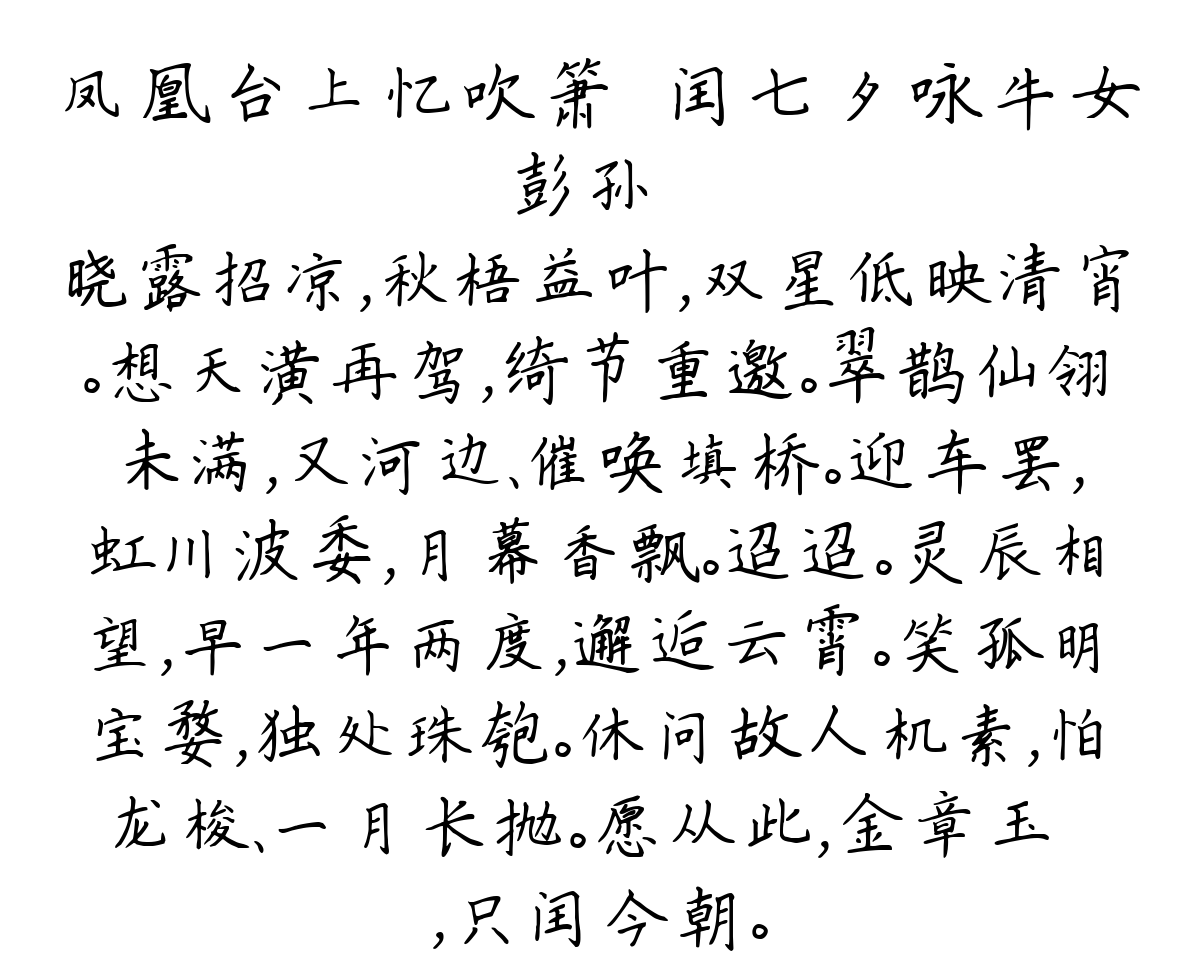 凤凰台上忆吹箫 闰七夕咏牛女
彭孙
晓露招凉,秋梧益叶,双星低映清宵
。想天潢再驾,绮节重邀。翠鹊仙翎
未满,又河边、催唤填桥。迎车罢,
虹川波委,月幕香飘。迢迢。灵辰相
望,早一年两度,邂逅云霄。笑孤明
宝婺,独处珠匏。休问故人机素,怕
龙梭、一月长抛。愿从此,金章玉
,只闰今朝。